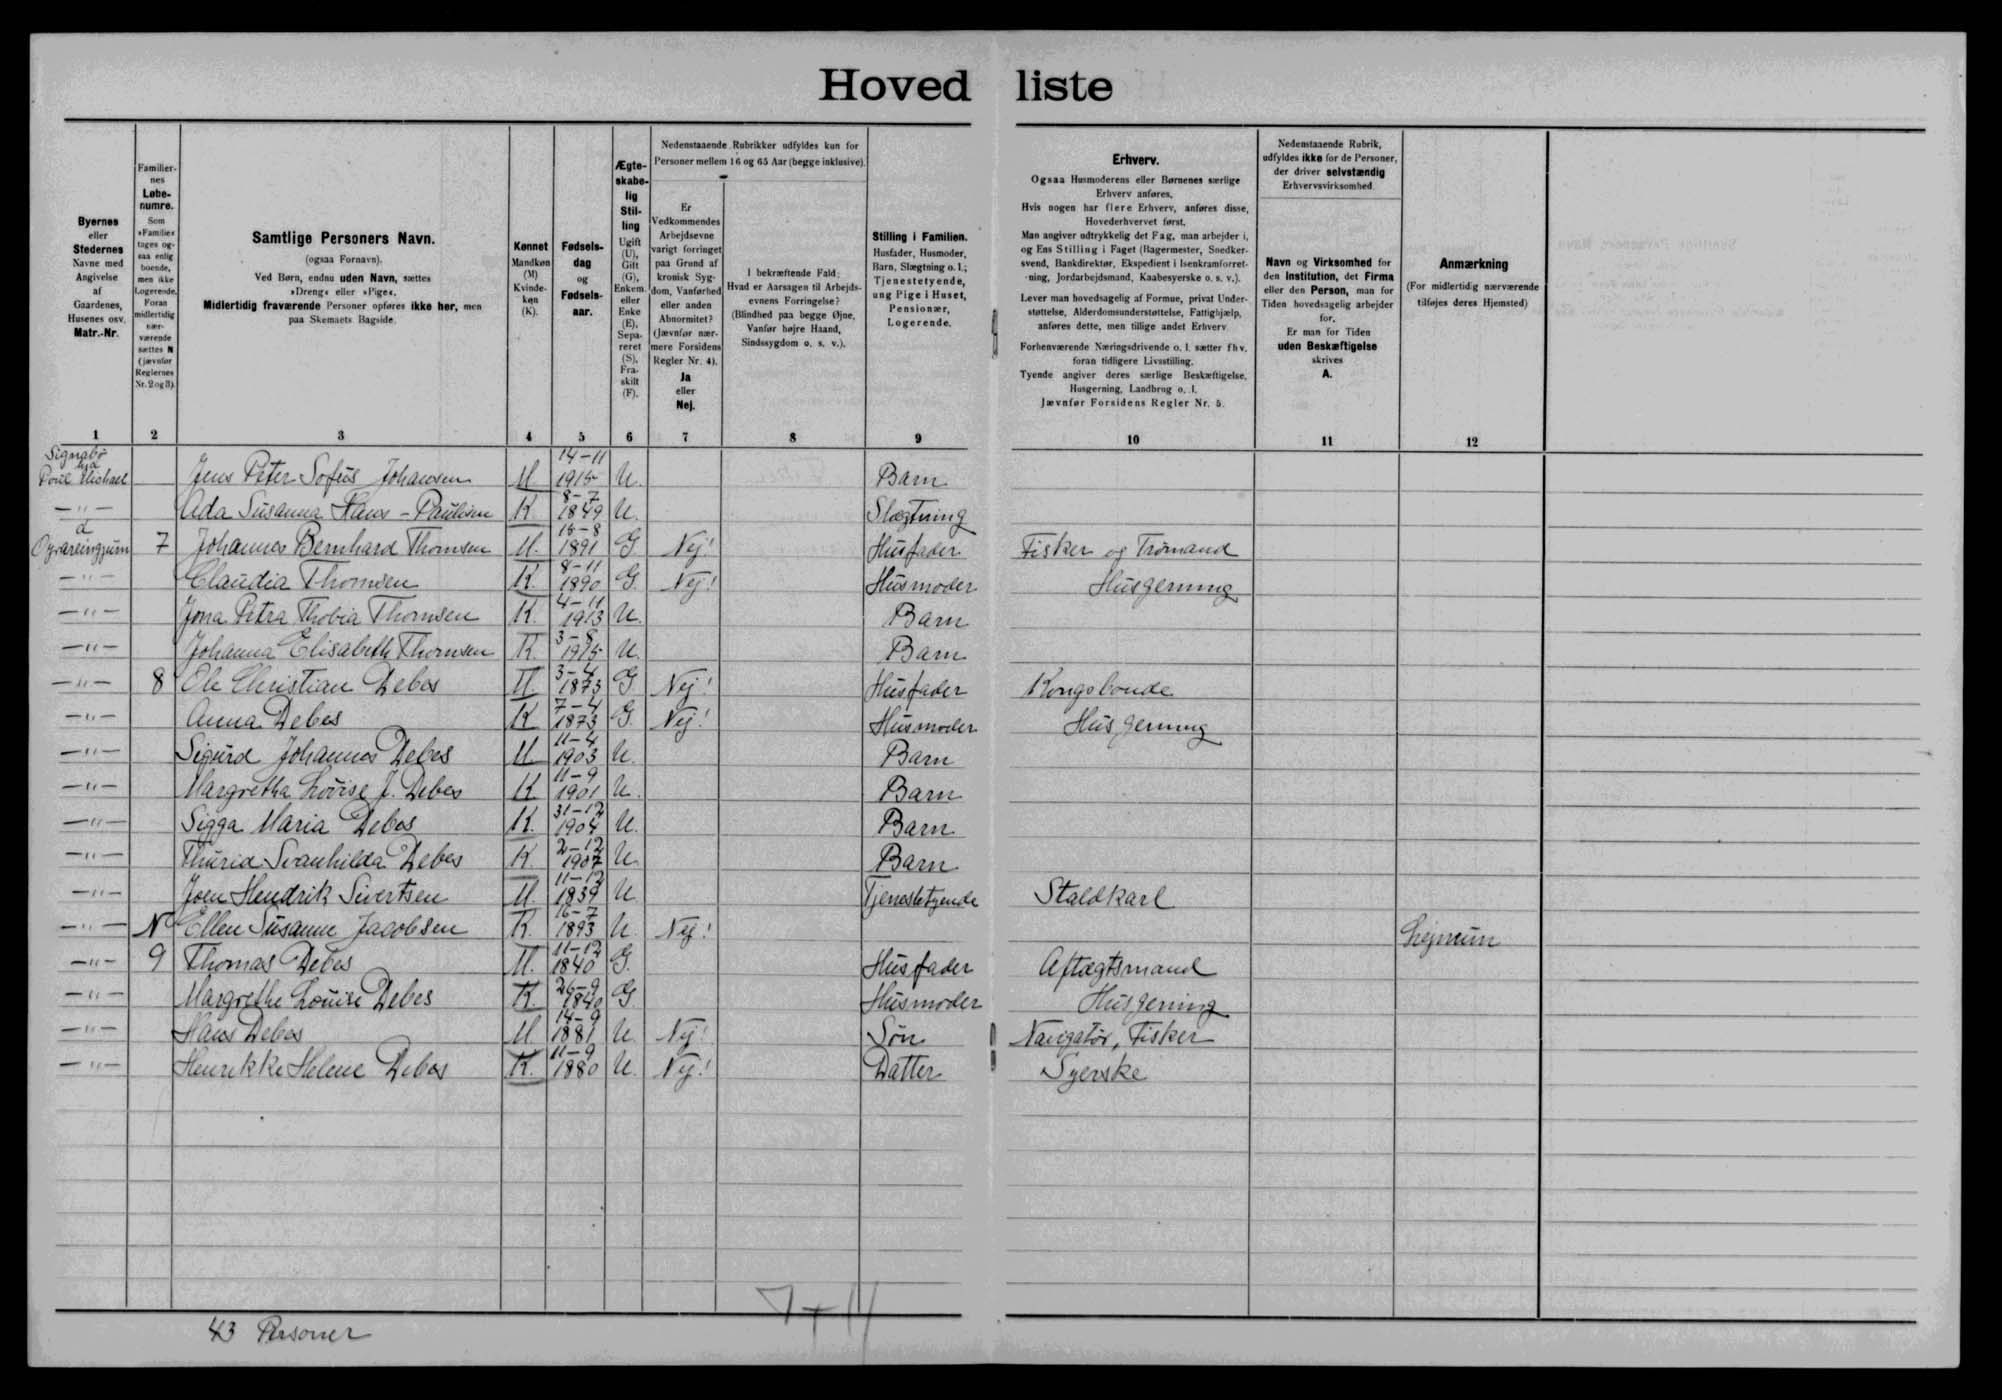 Hovedliste
Byernes eller Stedernes Navne med Angivelse af Gaardenes, Husenes osv. Matr.-Nr.
Familiernes Løbenumre. Som »Familie« tages ogsaa enlig boende, men ikke Logerende. Foran midlertidig nærværende sættes N (jævnfør Reglernes Nr. 2 og 3).
Samtlige Personers Navn.
(ogsaa Fornavn).
Ved Børn, endnu uden Navn, sættes
»Dreng« eller »Pige«.
Midlertidig fraværende Personer opføres ikke her, men
paa Skemaets Bagside.
Kønnet Mandkøn (M) Kvindekøn (K).
Fødselsdag og Fødselsaar.
Ægteskabelig Stilling Ugift (U), Gift (G), Enkem. eller Enke (E), Separeret (S), Fraskilt (F).
Nedenstaaende Rubrikker udfyldes kun for
Personer mellem 16 og 65 Aar (begge inklusive).
Er Vedkommendes Arbejdsevne varigt forringet paa Grund af kronisk Sygdom, Vanførhed eller anden Abnormitet? (Jævnfør nærmere Forsidens Regler Nr. 4). Ja eller Nej.
I bekræftende Fald: Hvad er Aarsagen til Arbejdsevnens Forringelse? (Blindhed paa begge Øjne, Vanfør højre Haand, Sindssygdom o. s. v.).
Stilling i Familien. Husfader, Husmoder, Barn, Slægtning o. l.; Tjenestetyende, ung Pige i Huset, Pensionær, Logerende.
Erhverv.
Ogsaa Husmoderens eller Børnenes særlige
Erhverv anføres.
Hvis nogen har flere Erhverv, anføres disse,
Hovederhvervet først.
Man angiver udtrykkelig det Fag, man arbejder i,
og Ens Stilling i Faget (Bagermester, Snedkersvend, Bankdirektør, Ekspedient i Isenkramforretning, Jordarbejdsmand, Kaabesyerske o. s. v.).
Lever man hovedsagelig af Formue, privat Understøttelse, Alderdomsunderstøttelse, Fattighjælp,
anføres dette, men tillige andet Erhverv
Forhenværende Næringsdrivende o. l. sætter fhv.
foran tidligere Livsstilling.
Tyende angiver deres særlige Beskæftigelse,
Husgerning, Landbrug o. l.
Jævnfør Forsidens Regler Nr. 5.
Nedenstaaende Rubrik,
udfyldes ikke for de Personer,
der driver selvstændig
Erhvervsvirksomhed
Navn og Virksomhed for
den Institution, det Firma
eller den Person, man for
Tiden hovedsagelig arbejder
for.
Er man for Tiden
uden Beskæftigelse
skrives
A.
Anmærkning
(For midlertidig nærværende
tilføjes deres Hjemsted)
1 2 3 4 5 6 7 8 9 10 11 12
Signabø hja Poul Michael Jens Peter Sofus Johansen M 14-11 1915 U. Barn
—"— Ada Susanna Hans-Paulisen K. 8-7 1849 U. Slægtning
7 Johannes Bernhard Thomsen M. 15-8 1891 G Nej! Husfader Fisker og Trømand
—"— Claudia Thomsen K. 8-11 1890 G. Nej! Husmoder Husgerning
—"— Jona Petra Thobia Thomsen K. 4-11 1913 U. Barn
—"— Johanna Elisabeth Thomsen K. 3-8 1915 U. Barn
—"— 8 Ole Christian Debes M 3-4 1873 G Nej! Husfader Kongsbonde
—"— Anna Debes K 7-4 1873 G. Nej! Husmoder Husgerning
—"— Sigurd Johannes Debes M 11-4 1903 U. Barn
—"— Margretha Lovise J. Debes K 11-9 1901 U. Barn
—"— Sigga Maria Debes K. 31-12 1904 U. Barn
—"— Thurid Svanhilda Debes K. 2-12 1907 U Barn
—"— Joen Hendrik Sivertsen M. 11-12 1839 U Tjenestetyende Staldkarl
—"— N Ellen Susanne Jacobsen K. 16-7 1893 U. Nej! Lejnum
—"— 9 Thomas Debes M. 11-12 1840 G. Husfader Aftægtsmand
—"— Margrethe Louise Debes K. 26-9 1840 G Husmoder Husgerning
—"— Hans Debes M. 14-9 1881 U Nej! Søn Navigatør, Fisker
—"— Henrikke Helene Debes K. 11-9 1880 U. Nej! Datter Syerske
7+11
43 Personer